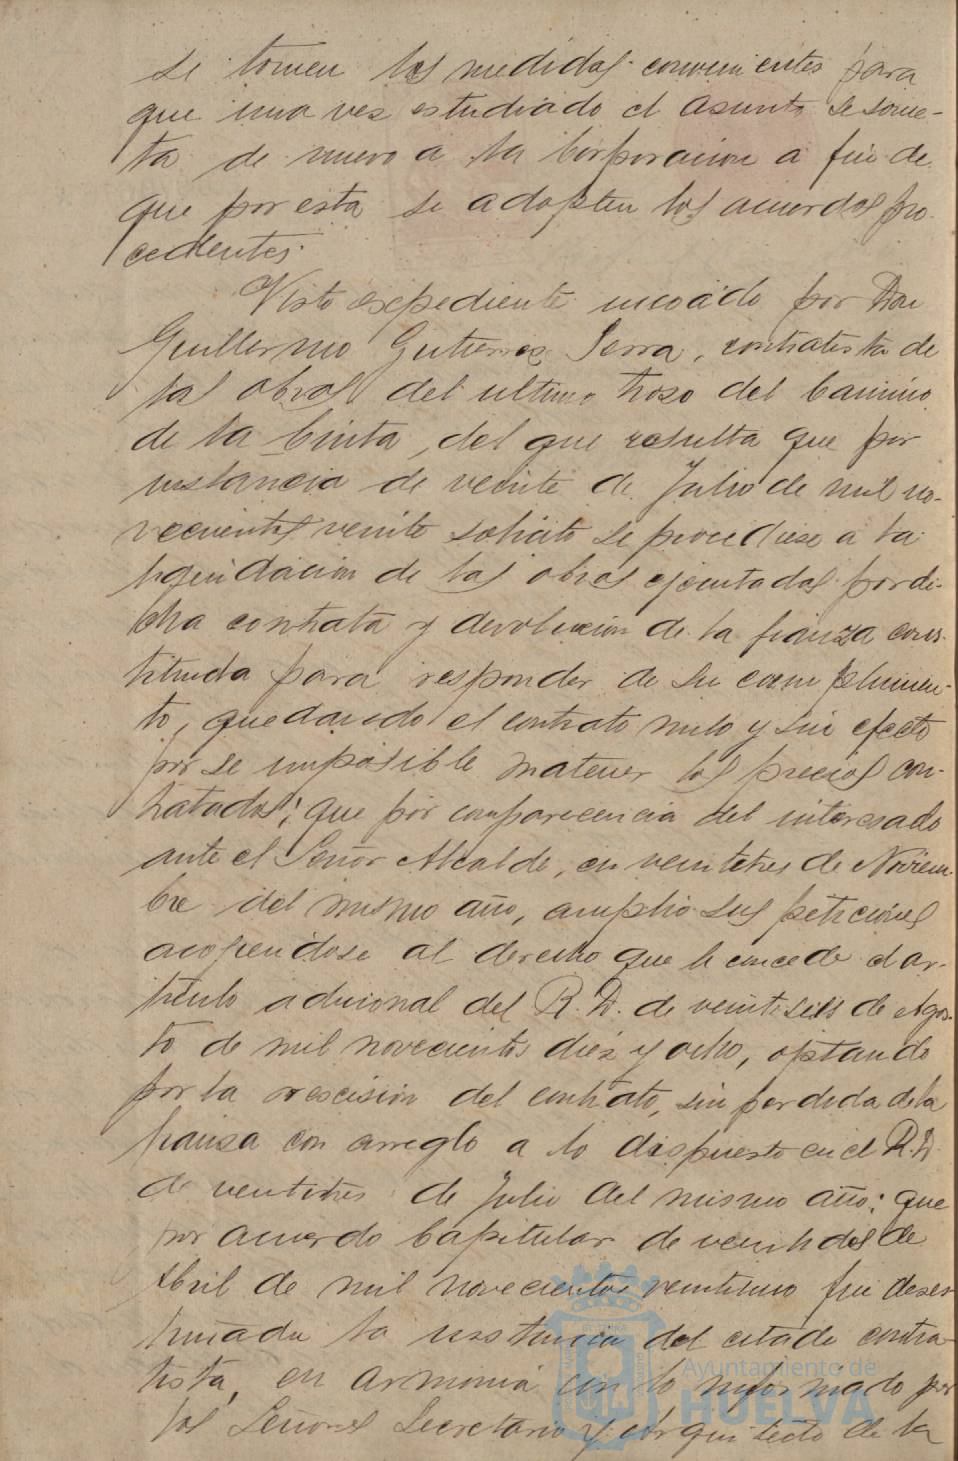 se tomen las medidas convenientes para
que una vez estudiado el asunto se some-
ta de nuevo a la Corporacion a fin de
que por esta se adopten los acuerdos pro-
cedentes.
Visto expediente incoado por Don
Guillermo Gutierrez Serra, contratista de
las obras del ultimo trozo del Camino
de la Cinta, del que resulta que por
instancia de veinte de Julio de mil no-
vecientos veinte solicito se procediese a la
liquidacion de las obras ejecutadas por di-
cha contrata y devolucion de la fianza cons-
tituida para responder de su cumplimien-
to, quedando el contrato nulo y sin efecto
por se imposible matener los precios con-
tratados; que por comparecencia del interesado
ante el Señor Alcalde, en veintitres de Noviem-
bre del mismo año, amplio sus peticiones
acogiendose al derecho que le concede el ar-
ticulo adicional del R. D. de veintiseis de Agos-
to de mil novecientos diez y ocho, optando
por la rescision del contrato, sin perdida de la
fianza con arreglo a lo dispuesto en el R. D.
de veintitres de Julio del mismo año; que
por acuerdo Capitular de veintidos de
Abril de mil novecientos veintiuno fue deses-
timada la instancia del citado contra-
tista, en armonia con lo informado por
los Señores Secretario y Arquitecto de la
Ayuntamiento de
HUELVA